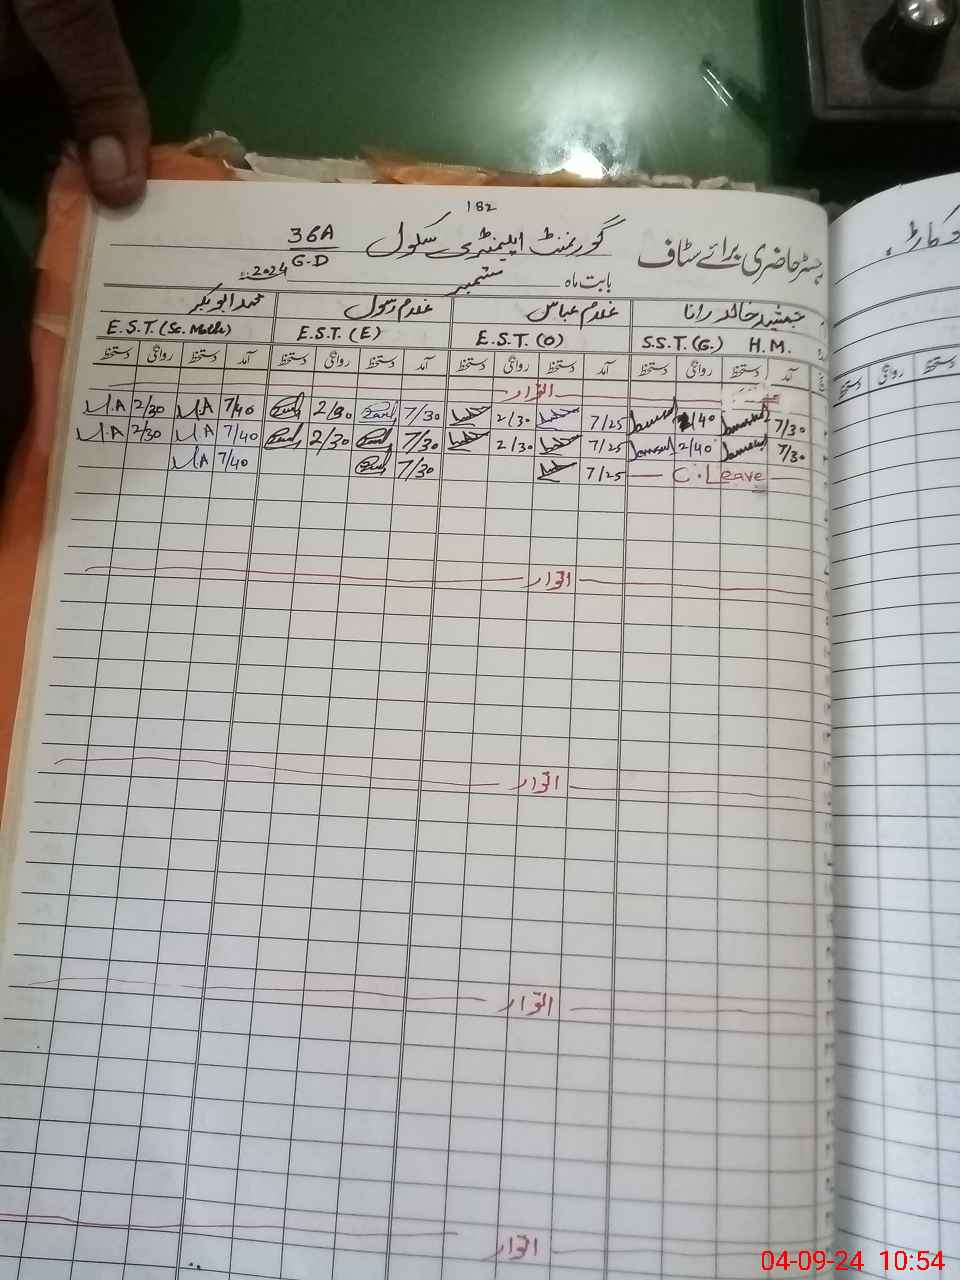 182
رجسٹر حاضری برائے سٹاف گورنمنٹ ایلیمنٹری سکول 36A
G.D
بابت ماہ ستمبر 2024
جمشید خالد رانا غلام عباس غلام رسول محمد ابوبکر
S.S.T.(G.) H.M. E.S.T.(O) E.S.T.(E) E.S.T.(Sc. Math)
آمد دستخط روانگی دستخط آمد دستخط روانگی دستخط آمد دستخط روانگی دستخط آمد دستخط روانگی دستخط
اتوار
7/30 2/40 7/25 2/30 7/30 2/30 7/40 M.A 2/30 M.A
7/30 2/40 7/25 2/30 7/30 2/30 7/40 M.A 2/30 M.A
C. Leave 7/25 7/30 7/40 M.A
اتوار
اتوار
اتوار
اتوار
دستخط روانگی دستخط
04-09-24 10:54